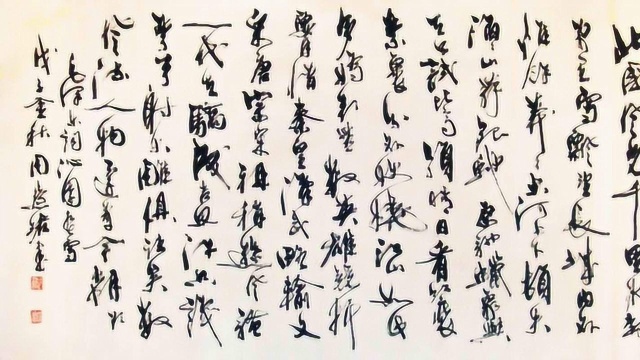 北国风光千里冰封
万里雪飘望长城内外
惟余莽莽大河上下顿失
滔滔山舞银蛇原驰蜡象欲与
天公试比高须晴日看红装
素裹分外妖娆江山如此
多娇引无数英雄竞折
腰惜秦皇汉武略输文
采唐宗宋祖稍逊风骚
一代天骄成吉思汗只识
弯弓射大雕俱往矣数
风流人物还看今朝
毛泽东词沁园春雪
戊子金秋周